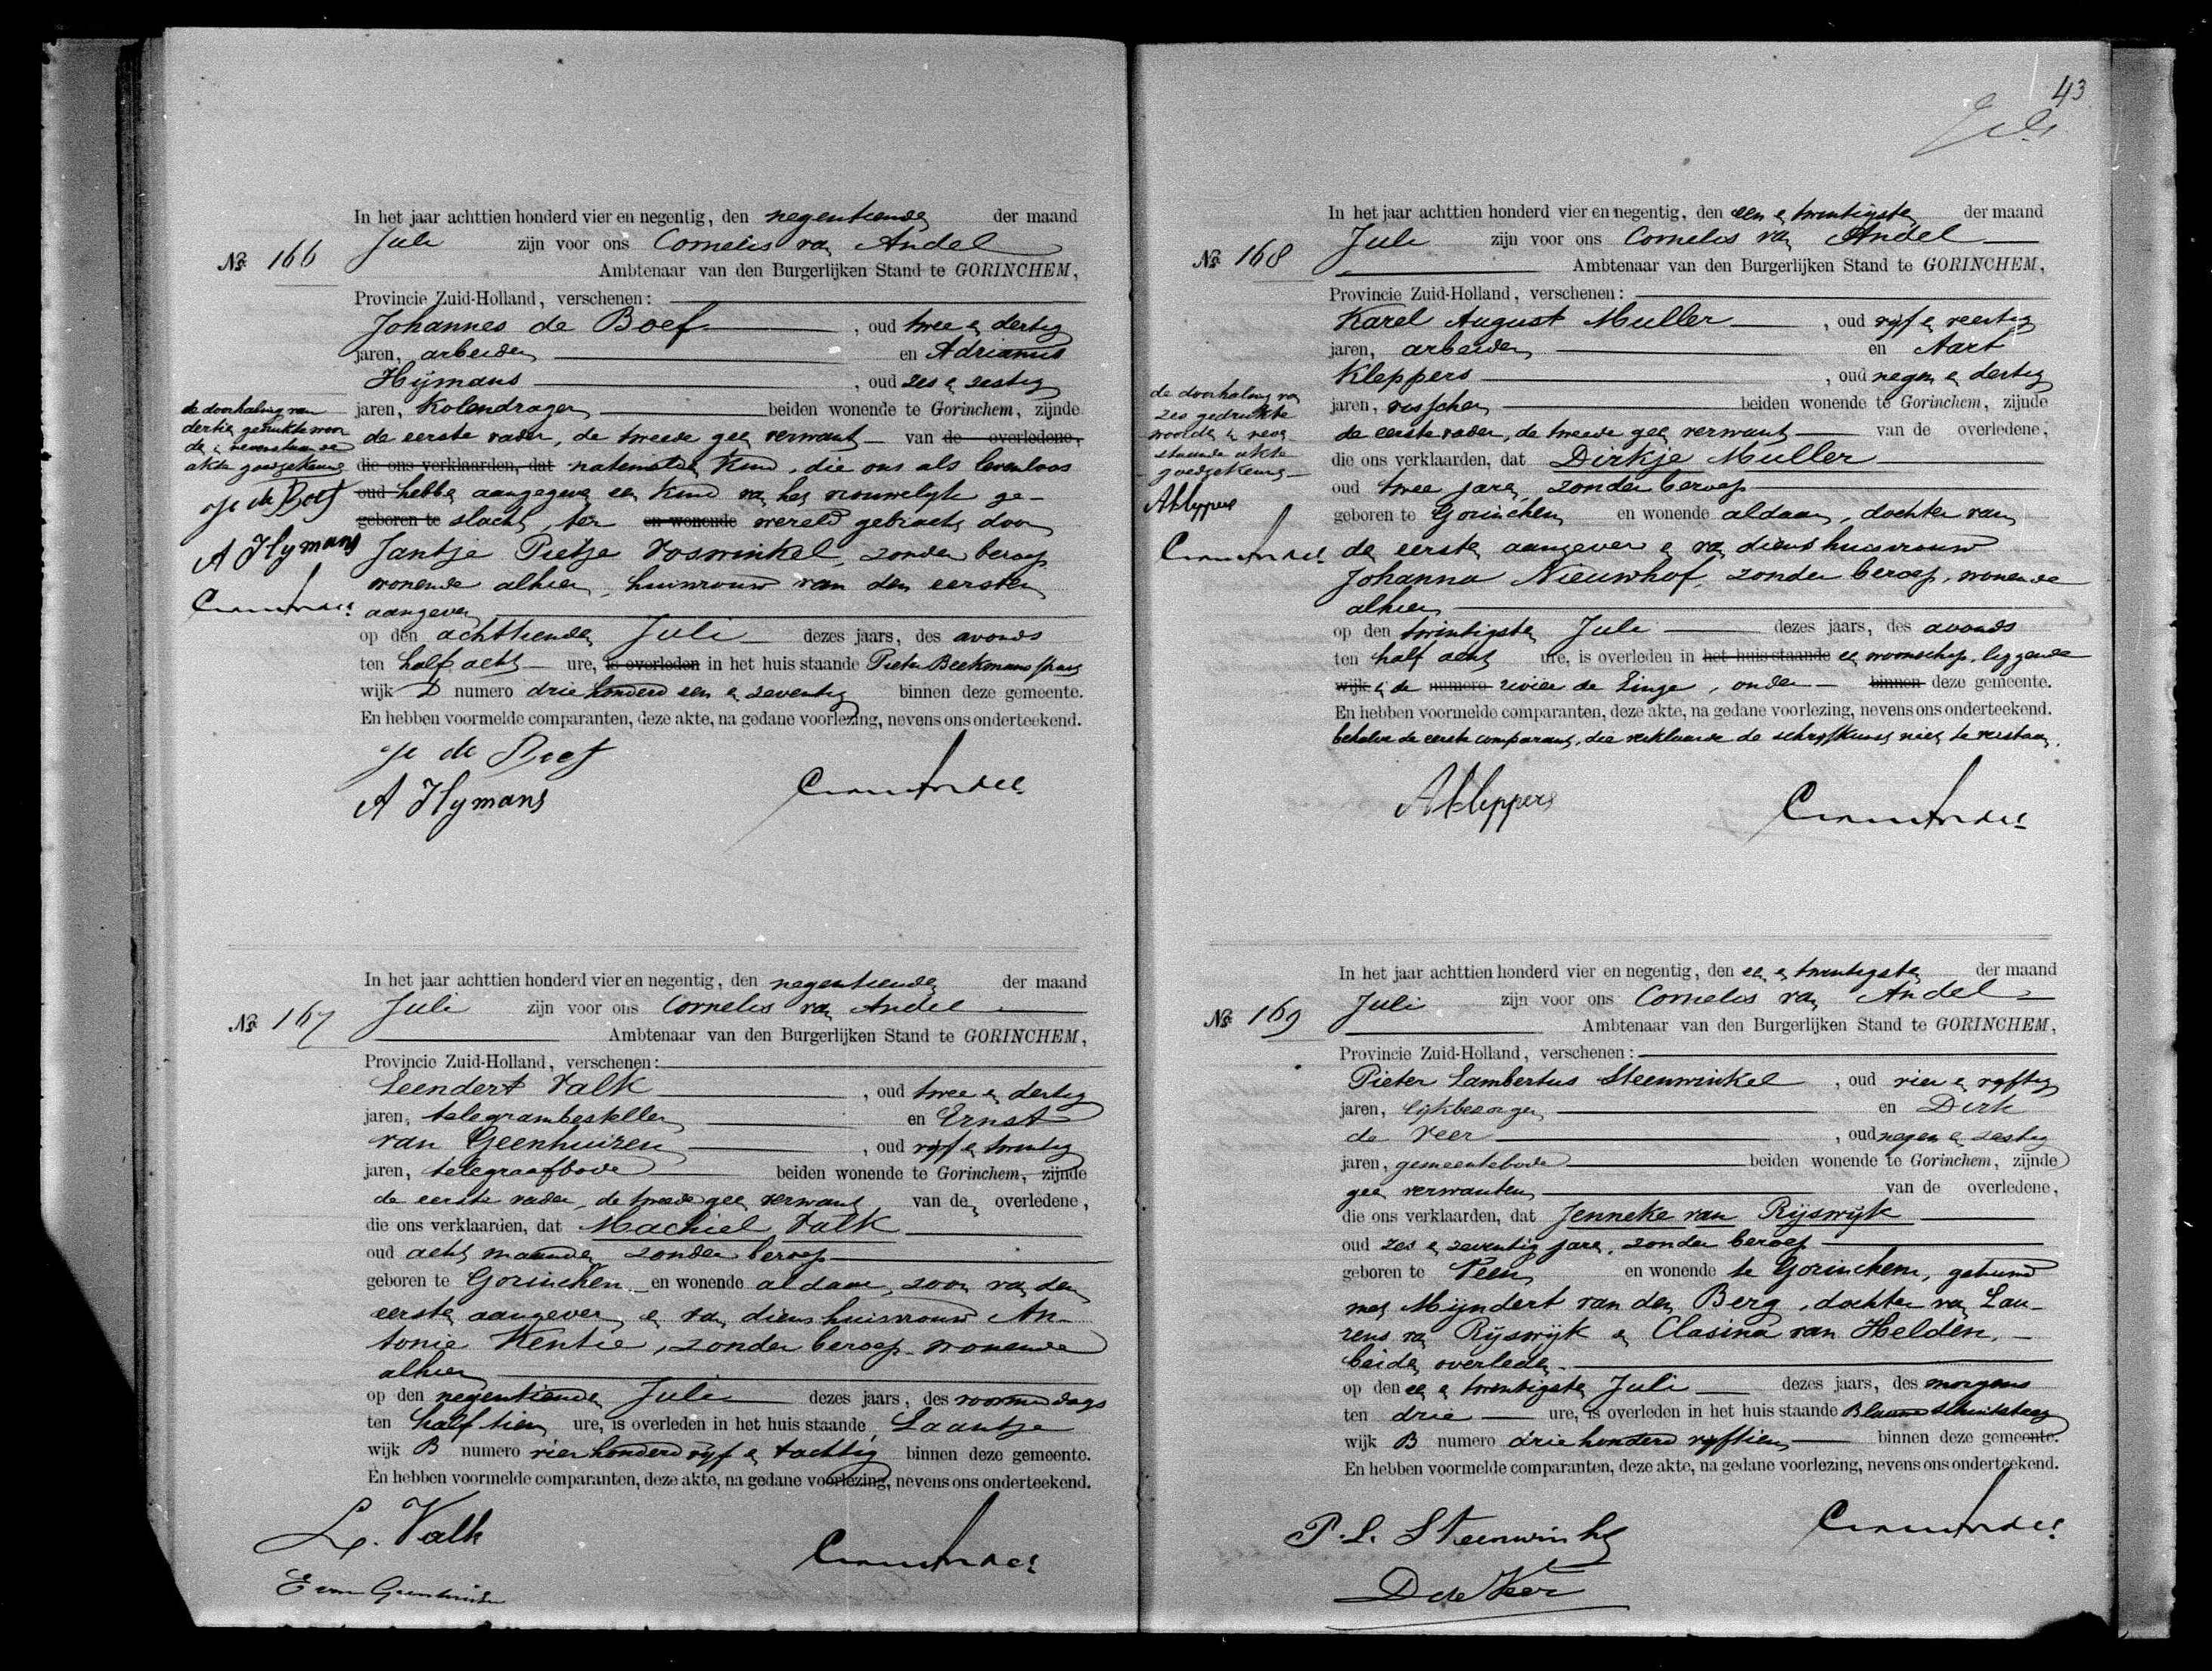 In het jaar achttien honderd vier en negentig, den negentienden der maand
Juli zijn voor ons Cornelis van Andel
No 166
Ambtenaar van den Burgerlijken Stand te GORINCHEM,
Provincie Zuid-Holland, verschenen:
Johannes de Boef, oud twee en dertig
jaren, arbeider en Adrianus
Hijmans, oud zes en zestig
jaren, kolendrager beiden wonende te Gorinchem, zijnde
de eerste vader, de tweede geen verwant van de overledene,
die ons verklaarden, dat natemelden kind, die ons als levenloos
oud hebben aangegeven een kind van het vrouwelijk ge-
geboren te slacht, ter en wonende wereld gebracht door
Jantje Pietje Voswinkel, zonder beroep
wonende alhier, huisvrouw van den eersten
aangever
op den achttienden Juli dezes jaars, des avonds
ten half acht ure, is overleden in het huis staande Pieter Beekmans straat
wijk D numero driehonderd een en zeventig binnen deze gemeente.
En hebben voormelde comparanten, deze akte, na gedane voorlezing, nevens ons onderteekend.
de doorhaling van
dertien gedrukte woor
den in nevenstaande
akte goedgekeurd
J. de Boef
A Hymans
C van Andel
J. de Boef
A Hymans
C van Andel
In het jaar achttien honderd vier en negentig, den negentienden der maand
Juli zijn voor ons Cornelis van Andel
No 167
Ambtenaar van den Burgerlijken Stand te GORINCHEM,
Provincie Zuid-Holland, verschenen:
Leendert Valk, oud twee en dertig
jaren, telegrambesteller en Ernst
van Geenhuizen, oud vijf en twintig
jaren, telegraafbode beiden wonende te Gorinchem, zijnde
de eerste vader, de tweede geen verwant van den overledene,
die ons verklaarden, dat Machiel Valk
oud acht maanden zonder beroep
geboren te Gorinchem en wonende aldaar, zoon van den
eersten aangever en van diens huisvrouw An-
tonie Kentie, zonder beroep wonende
alhier
op den negentienden Juli dezes jaars, des voormiddags
ten half tien ure, is overleden in het huis staande Laantje
wijk B numero vierhonderd vijf en tachtig binnen deze gemeente.
En hebben voormelde comparanten, deze akte, na gedane voorlezing, nevens ons onderteekend.
L. Valk
E van Geenhuizen
C van Andel
43
Juli
In het jaar achttien honderd vier en negentig, den een en twintigsten der maand
Juli zijn voor ons Cornelis van Andel
No 168
Ambtenaar van den Burgerlijken Stand te GORINCHEM,
Provincie Zuid-Holland, verschenen:
Karel August Muller, oud vijf en veertig
jaren, arbeider en Aart
Kleppers, oud negen en dertig
jaren, visscher beiden wonende te Gorinchem, zijnde
de eerste vader, de tweede geen verwant van de overledene,
die ons verklaarden, dat Dirkje Muller
oud twee jaren, zonder beroep
geboren te Gorinchem en wonende aldaar, dochter van
den eersten aangever en van diens huisvrouw
Johanna Nieuwhof, zonder beroep, wonende
alhier
op den twintigsten Juli dezes jaars, des avonds
ten half acht ure, is overleden in het huis staande een woonschip, liggende
wijk in de numero rivier de Linge, onder binnen deze gemeente.
En hebben voormelde comparanten, deze akte, na gedane voorlezing, nevens ons onderteekend.
behalve de eerste comparant, die verklaarde de schrijfkunst niet te verstaan.
de doorhaling van
zes gedrukte
woorden in neven
staande akte
goedgekeurd
AKleppers
C van Andel
AKleppers
C van Andel
In het jaar achttien honderd vier en negentig, den een en twintigsten der maand
Juli zijn voor ons Cornelis van Andel
No 169
Ambtenaar van den Burgerlijken Stand te GORINCHEM,
Provincie Zuid-Holland, verschenen:
Pieter Lambertus Steenwinkel, oud vier en vijftig
jaren, lijkbezorger en Dirk
de Veer, oud negen en zestig
jaren, gemeentebode beiden wonende te Gorinchem, zijnde
geen verwanten van de overledene,
die ons verklaarden, dat Jenneke van Rijswijk
oud zes en zeventig jaren, zonder beroep
geboren te Veen en wonende te Gorinchem, gehuwd
met Mijndert van den Berg, dochter van Lau-
rens van Rijswijk en Clasina van Helden,
beiden overleden.
op den een en twintigsten Juli dezes jaars, des morgens
ten drie ure, is overleden in het huis staande Blauwe Schuitsteeg
wijk B numero driehonderd vijftien binnen deze gemeente.
En hebben voormelde comparanten, deze akte, na gedane voorlezing, nevens ons onderteekend.
P. L. Steenwinkel
D de Veer
C van Andel